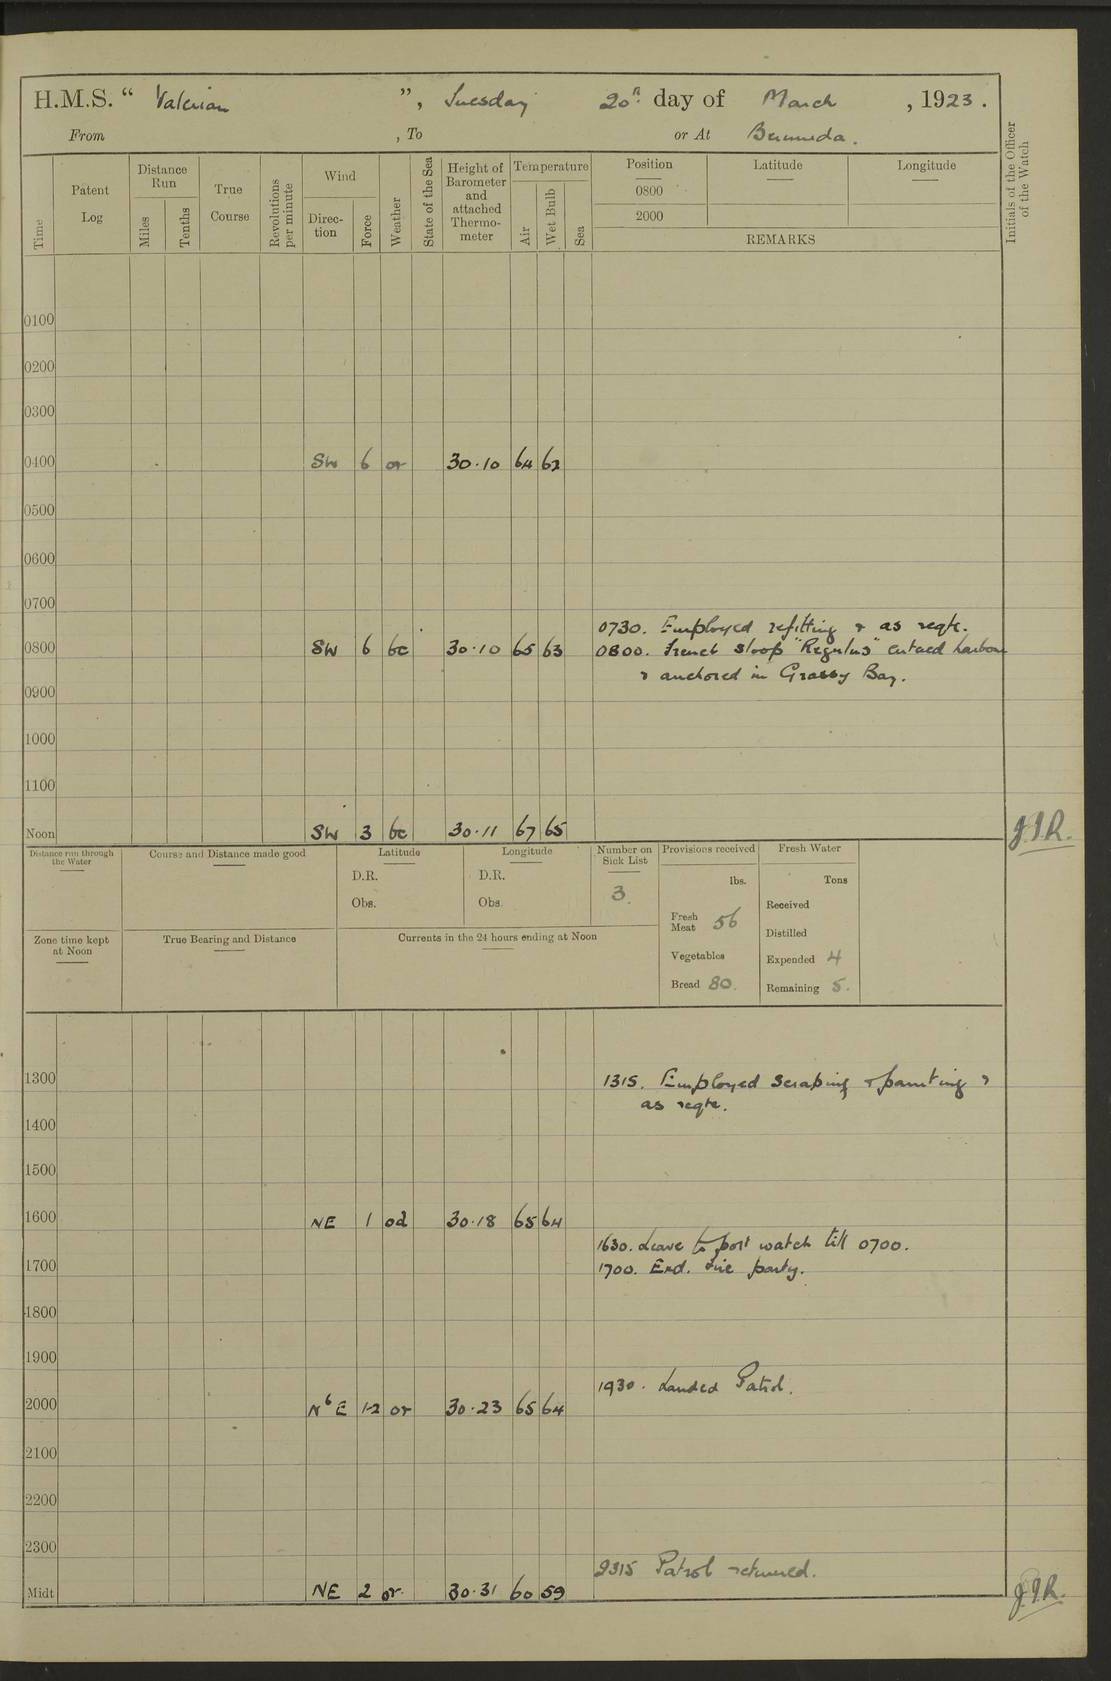 H.M.S. “ Valerian ”, Tuesday 20th day of March , 1923.
From , To or At Bermuda.
Time
Patent Log
Distance Run
Miles
Tenths
True Course
Revolutions per minute
Wind
Direc-tion
Force
Weather
State of the Sea
Height of Barometer and attached Thermo-meter
Temperature
Air
Wet Bulb
Sea
Position
0800
2000
Latitude
Longitude
REMARKS
Initials of the Officer of the Watch
0100
0200
0300
0400 SW 6 or 30.10 64 62
0500
0600
0700
0730. Employed refitting & as reqte.
0800 SW 6 bc 30.10 65 63 0800. French sloop "Regulus" entered harbour
& anchored in Grassy Bay.
0900
1000
1100
Noon SW 3 bc 30.11 67 65 J.J.R.
Distance run through the Water
Course and Distance made good
Latitude
D.R.
Obs.
Longitude
D.R.
Obs.
Number on Sick List
3.
Provisions received
lbs.
Fresh Meat 56
Vegetables
Bread 80.
Fresh Water
Tons
Received
Distilled
Expended 4
Remaining 5.
Zone time kept at Noon
True Bearing and Distance
Currents in the 24 hours ending at Noon
1300 1315. Employed scraping & painting &
as reqte.
1400
1500
1600 NE 1 od 30.18 65 64
1630. Leave to port watch till 0700.
1700 1700. Exd. fire party.
1800
1900
1930. Landed Patrol.
2000 NbE 1-2 or 30.23 65 64
2100
2200
2300
2315 Patrol returned.
Midt NE 2 or. 30.31 60 59 J.J.R.